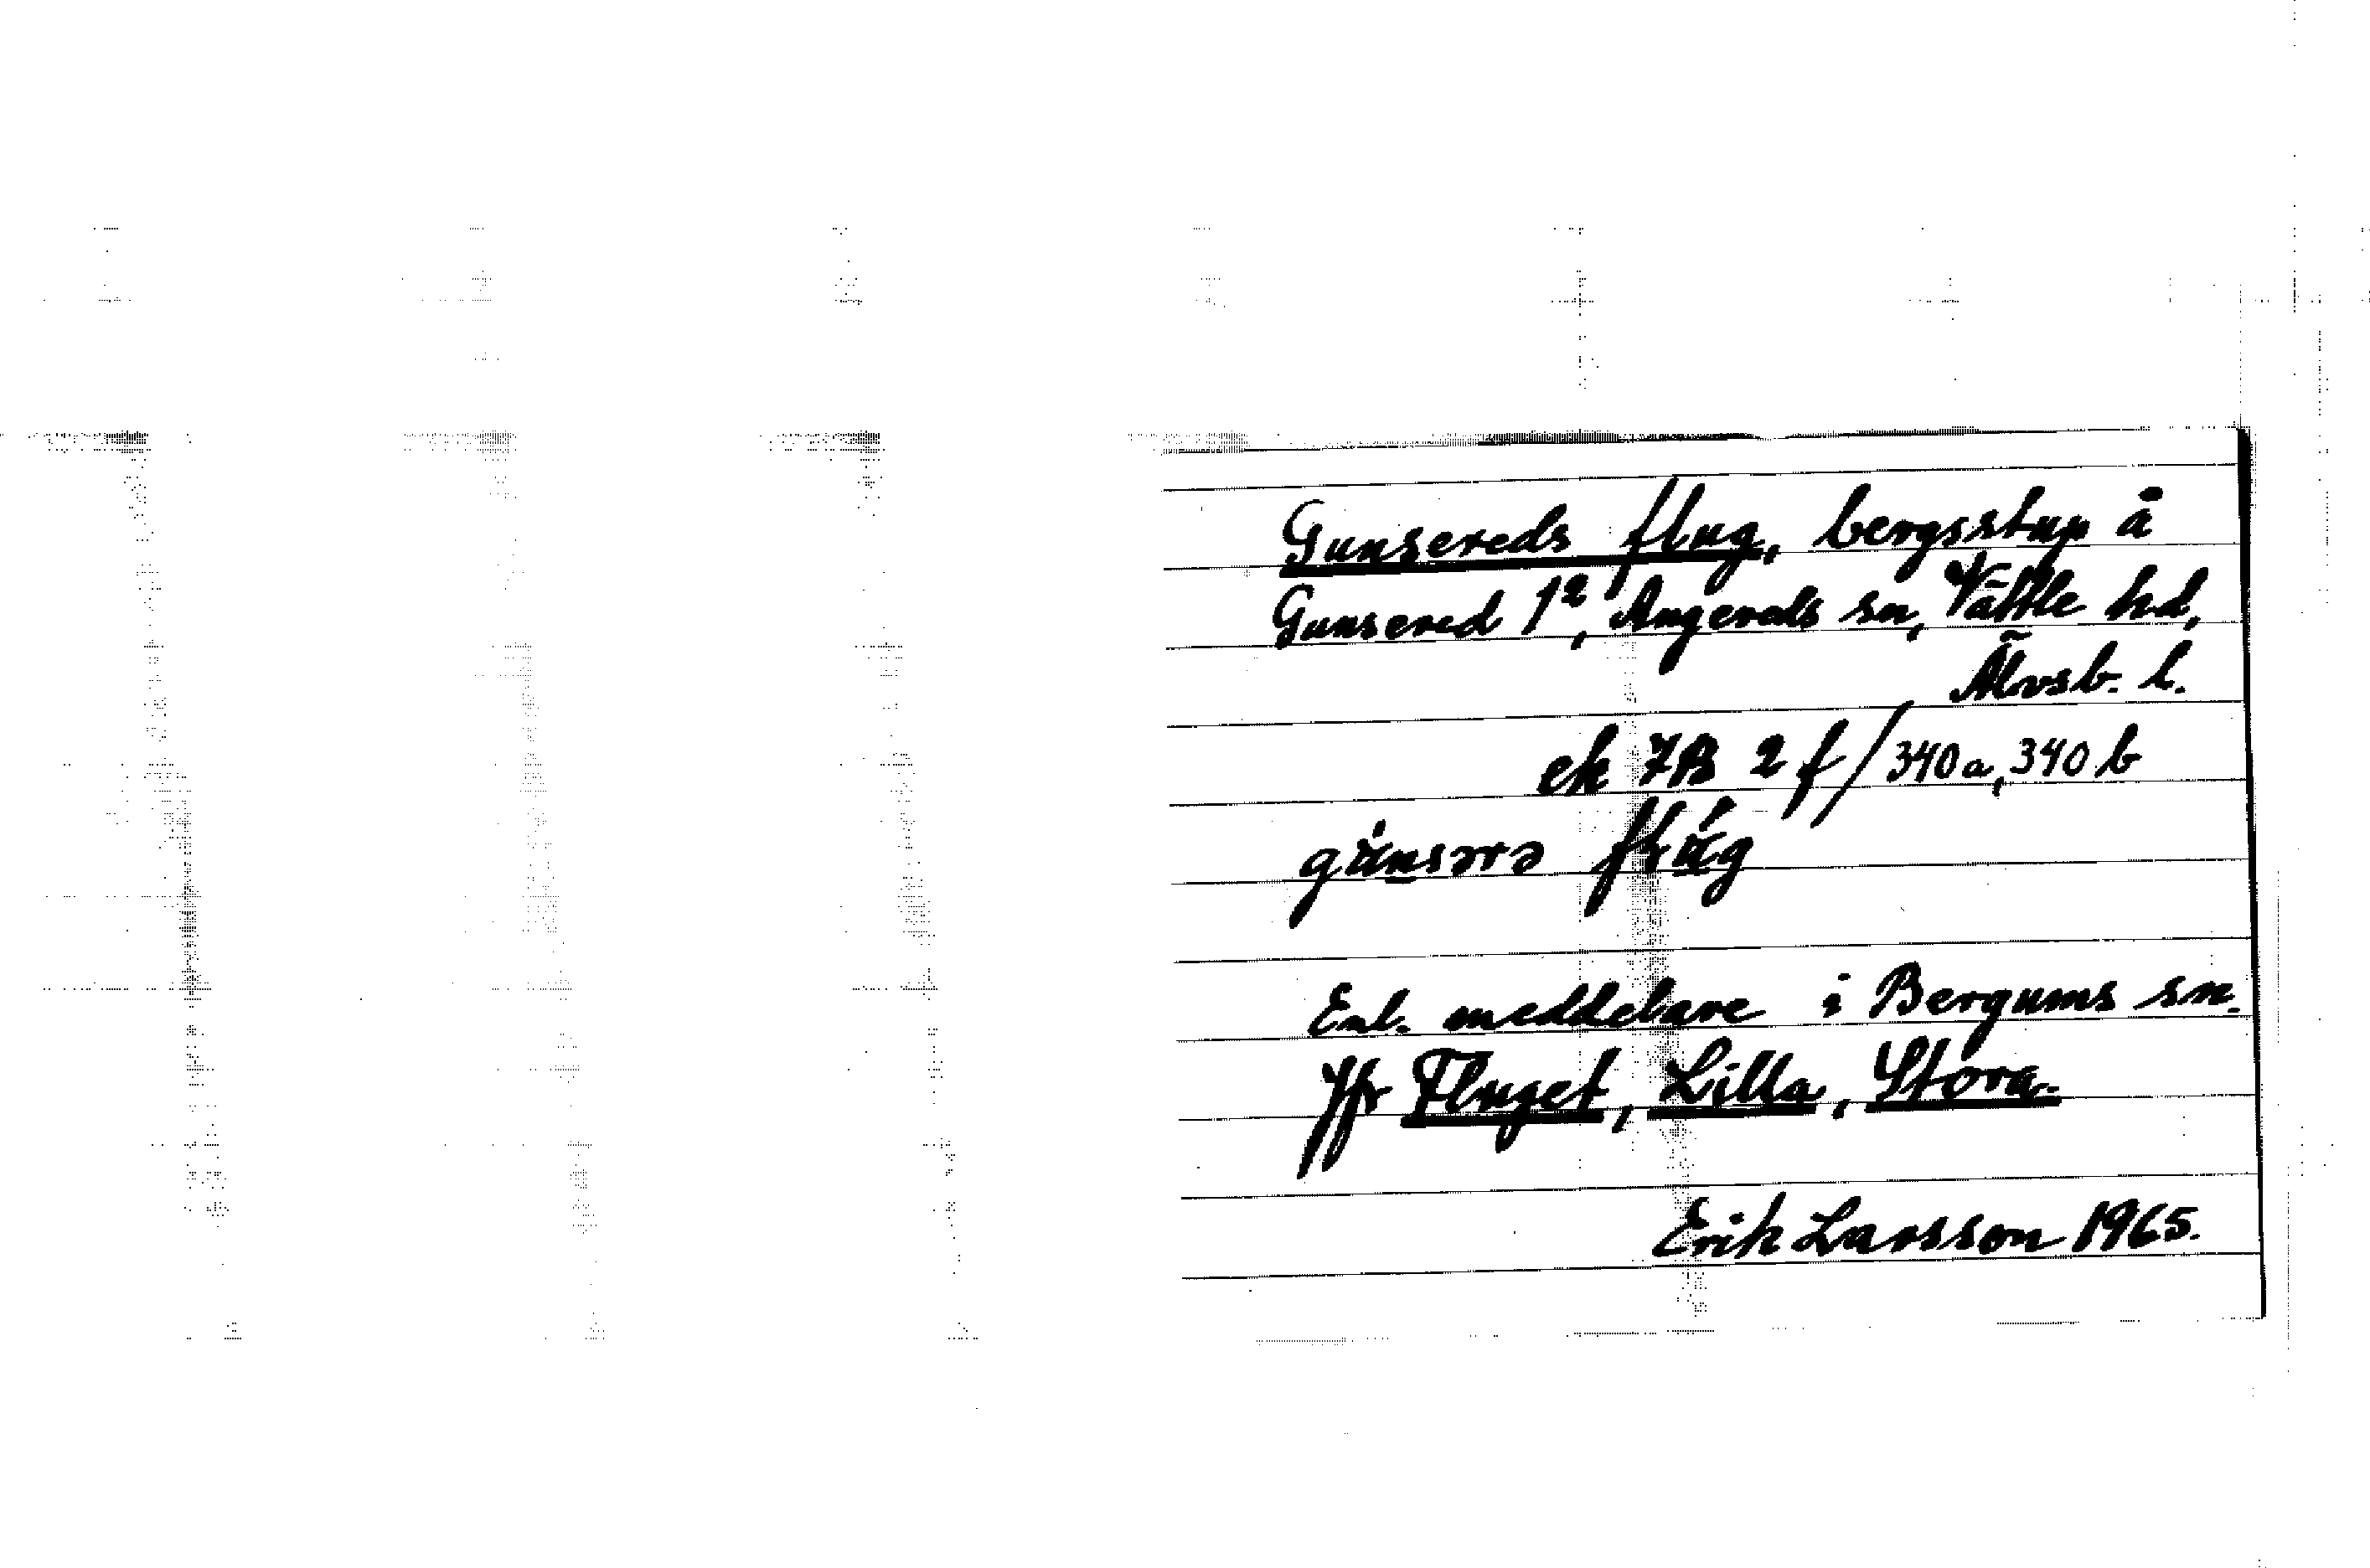 Gunsereds flug, bergsstup å
Gunsered 1², Angereds sn, Vättle hd,
Älvsb. l.
ek 7B 2 f/340a, 340 b
Enl. meddelare i Bergums sn.
Jfr Fluget, Lilla, Stora.
Erik Larsson 1965.